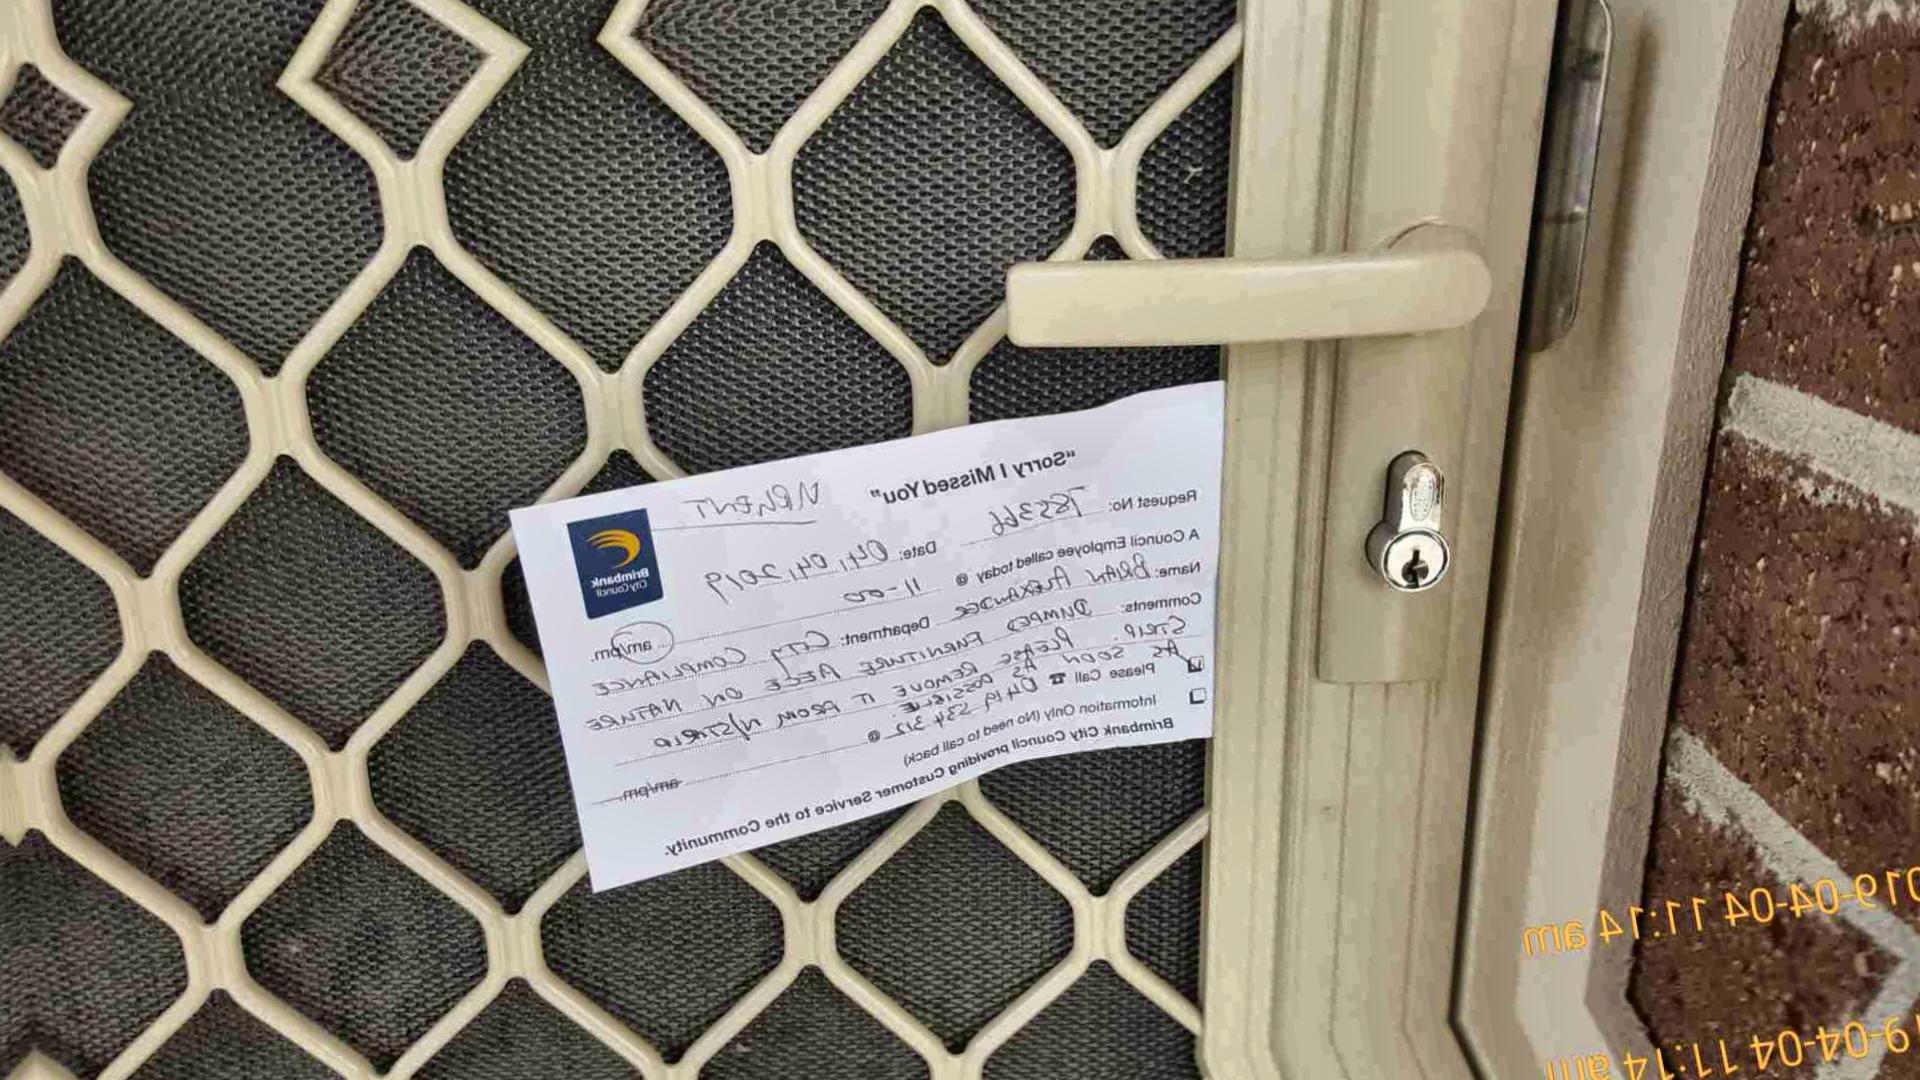 "Sorry I Missed You"
URGENT
Request No: 785366
Date: 04.04.2019
A Council Employee called today @ 11-00 am/pm.
Name: BRIAN ALEXANDER Department: CITY COMPLIANCE
Comments: DUMPED FURNITURE HERE ON NATURE
STRIP. PLEASE REMOVE IT FROM N/STRIP
AS SOON AS POSSIBLE
Please Call ☎ 0419 534 313 @ am/pm
Information Only (No need to call back)
Brimbank City Council providing Customer Service to the Community.
Brimbank
City Council
019-04-04 11:14 am
19-04-04 11:14 am